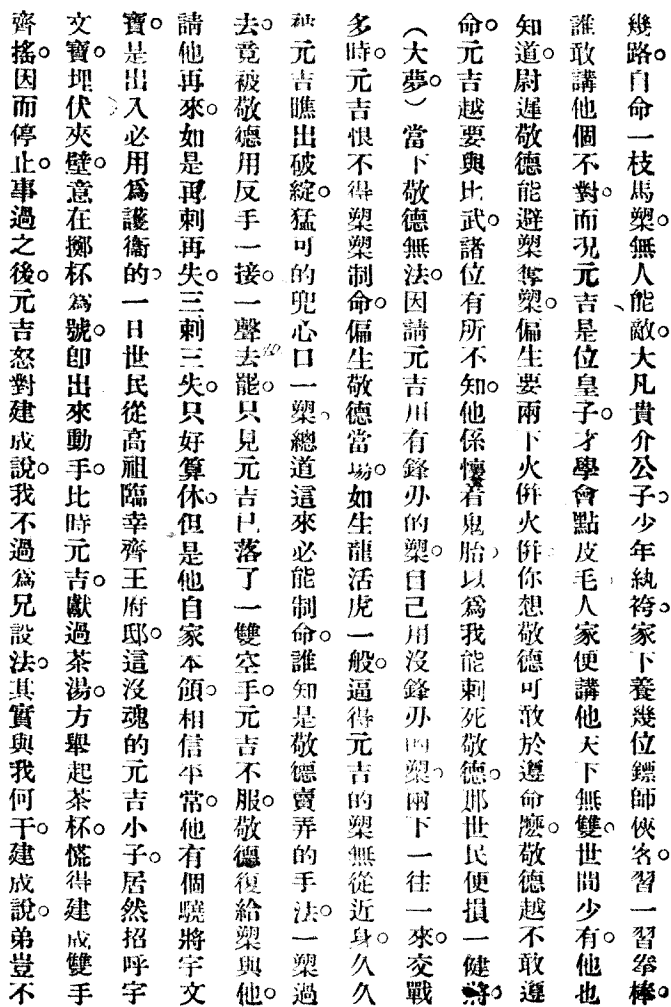 幾路。自命一枝馬槊。無人能敵。大凡貴介公子。少年紈袴。家下養幾位鏢師俠客。習一習拳棒。
誰敢講他個不對。而况元吉是位皇子。才學會點皮毛。人家便講他天下無雙。世間少有。他也
知道尉遲敬德能避槊奪槊。偏生要兩下火倂火倂。你想敬德可敢於遵命麽。敬德越不敢遵
命。元吉越要與比武。諸位有所不知。他係懷着鬼胎。以爲我能刺死敬德。那世民便損一健將。
(大夢)當下敬德無法。因請元吉用有鋒刃的槊。自己用沒鋒刃的槊。兩下一往一來。交戰
多時。元吉恨不得槊槊制命。偏生敬德當場。如生龍活虎一般。逼得元吉的槊無從近身。久久
被元吉瞧出破綻。猛可的兜心口一槊。總道這來必能制命。誰知是敬德賣弄的手法。一槊過
去。竟被敬德用反手一接。一聲去能。只見元吉已落了一雙空手。元吉不服。敬德復給槊與他。
請他再來。如是再刺再失。三刺三失。只好算休。但是他自家本領。相信平常。他有個驍將宇文
寶。是出入必用爲護衞的。一日世民從高祖臨幸齊王府邸。這沒魂的元吉小子。居然招呼宇
文寶埋伏夾壁。意在擲杯爲號。卽出來動手。比時元吉。獻過茶湯。方舉起茶杯。慌得建成雙手
齊搖。因而停止。事過之後。元吉怒對建成說。我不過爲兄設法。其實與我何干。建成說。弟豈不